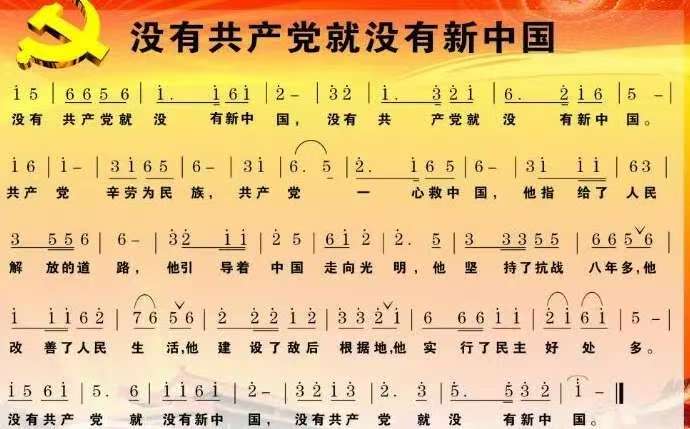 没有共产党就没有新中国
i 5 | 6 6 5 6 | i. i 6 i | 2 - | 3 2 | i. 3 2 i | 6. 2 i 6 | 5 - |
没有 共产党就 没 有新中 国，没有 共 产党就 没 有新中国。
i 6 | i - | 3 i 6 5 | 6 - | 3 i | 6. 5 | 2. i 6 5 | 6 - | 3 i i i | 6 3 |
共产 党 辛劳为民 族，共产 党 一 心救中国，他指 给了 人民
3 5 5 6 | 6 - | 3 2 i i | 2 5 | 6 i 6 i | 2. 5 | 3 3 5 5 | 6 6 5 6 |
解 放的道 路，他引 导着 中国 走向光 明，他 坚 持了抗战 八年多，他
i i i 6 2 | 7 6 5 6 | 2 2 2 i 2 | 3 3 2 i | 6 6 6 i i | 2 i 6 i | 5 - |
改 善了人民 生 活，他 建 设了敌后 根据地，他 实 行了民主 好 处 多。
i 5 6 i | 5. 6 | i i 6 i | 2 - | 3 2 i 2 | 3. 2 | 5. 5 3 2 | i - ‖
没有共产 党 就 没有新中 国，没有共产 党 就 没 有新中国。